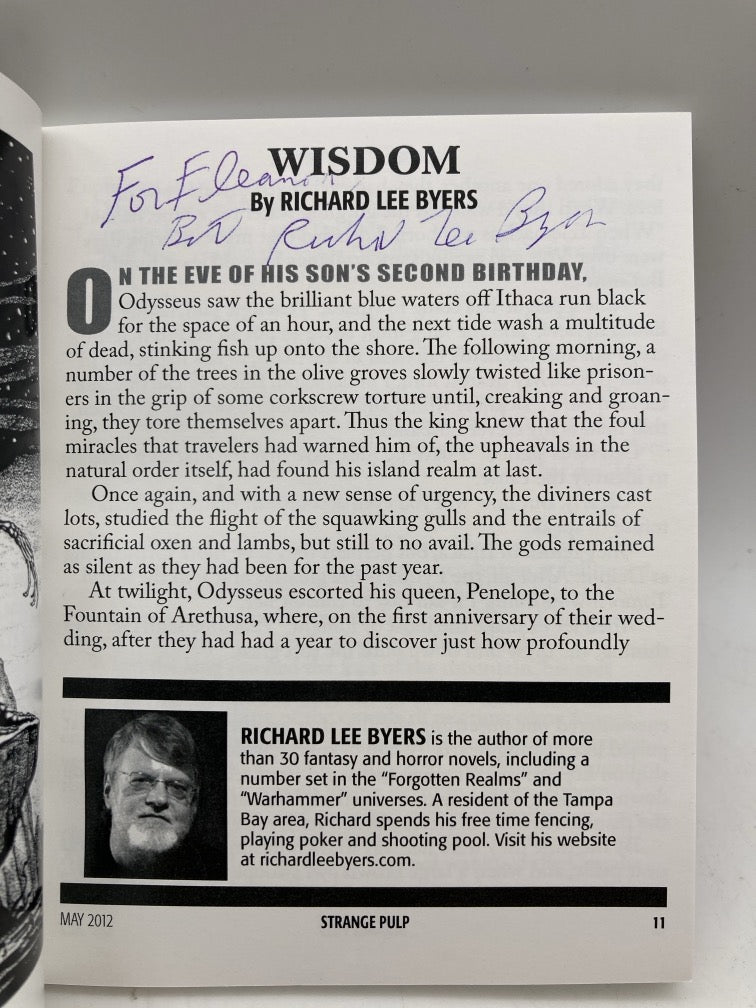 WISDOM
For Eleanor,
By RICHARD LEE BYERS
Richard Lee Byers
ON THE EVE OF HIS SON'S SECOND BIRTHDAY,
Odysseus saw the brilliant blue waters off Ithaca run black
for the space of an hour, and the next tide wash a multitude
of dead, stinking fish up onto the shore. The following morning, a
number of the trees in the olive groves slowly twisted like prison-
ers in the grip of some corkscrew torture until, creaking and groan-
ing, they tore themselves apart. Thus the king knew that the foul
miracles that travelers had warned him of, the upheavals in the
natural order itself, had found his island realm at last.
Once again, and with a new sense of urgency, the diviners cast
lots, studied the flight of the squawking gulls and the entrails of
sacrificial oxen and lambs, but still to no avail. The gods remained
as silent as they had been for the past year.
At twilight, Odysseus escorted his queen, Penelope, to the
Fountain of Arethusa, where, on the first anniversary of their wed-
ding, after they had had a year to discover just how profoundly
RICHARD LEE BYERS is the author of more
than 30 fantasy and horror novels, including a
number set in the “Forgotten Realms” and
“Warhammer” universes. A resident of the Tampa
Bay area, Richard spends his free time fencing,
playing poker and shooting pool. Visit his website
at richardleebyers.com.
MAY 2012 STRANGE PULP 11